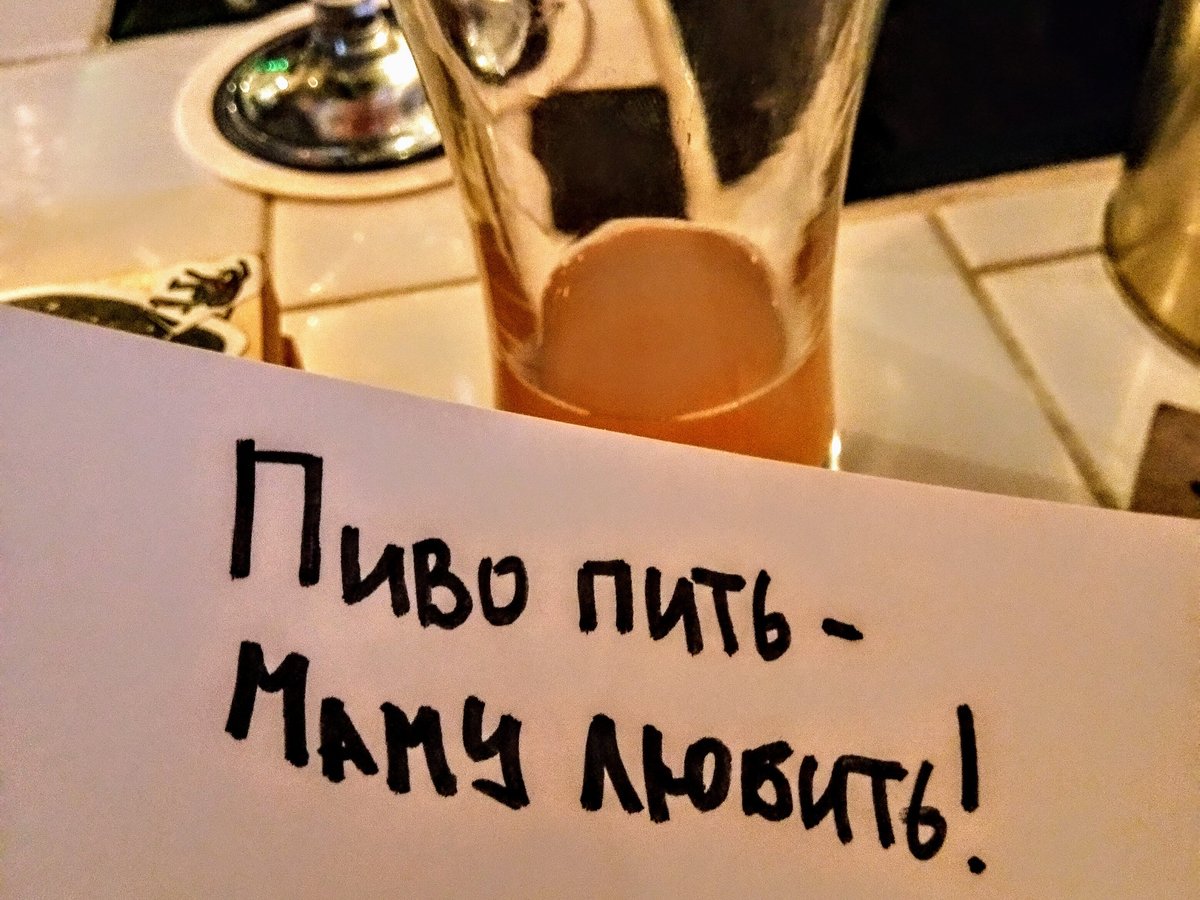 Пиво пить -
Маму любить!